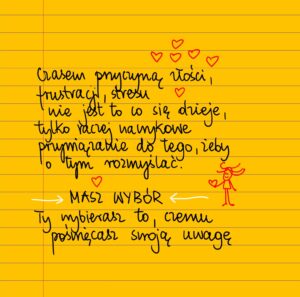 Czasem przyczyną złości,
frustracji, stresu
nie jest to co się dzieje,
tylko raczej nawykowe
przywiązanie do tego, żeby
o tym rozmyślać.
MASZ WYBÓR
Ty wybierasz to, czemu
poświęcasz swoją uwagę